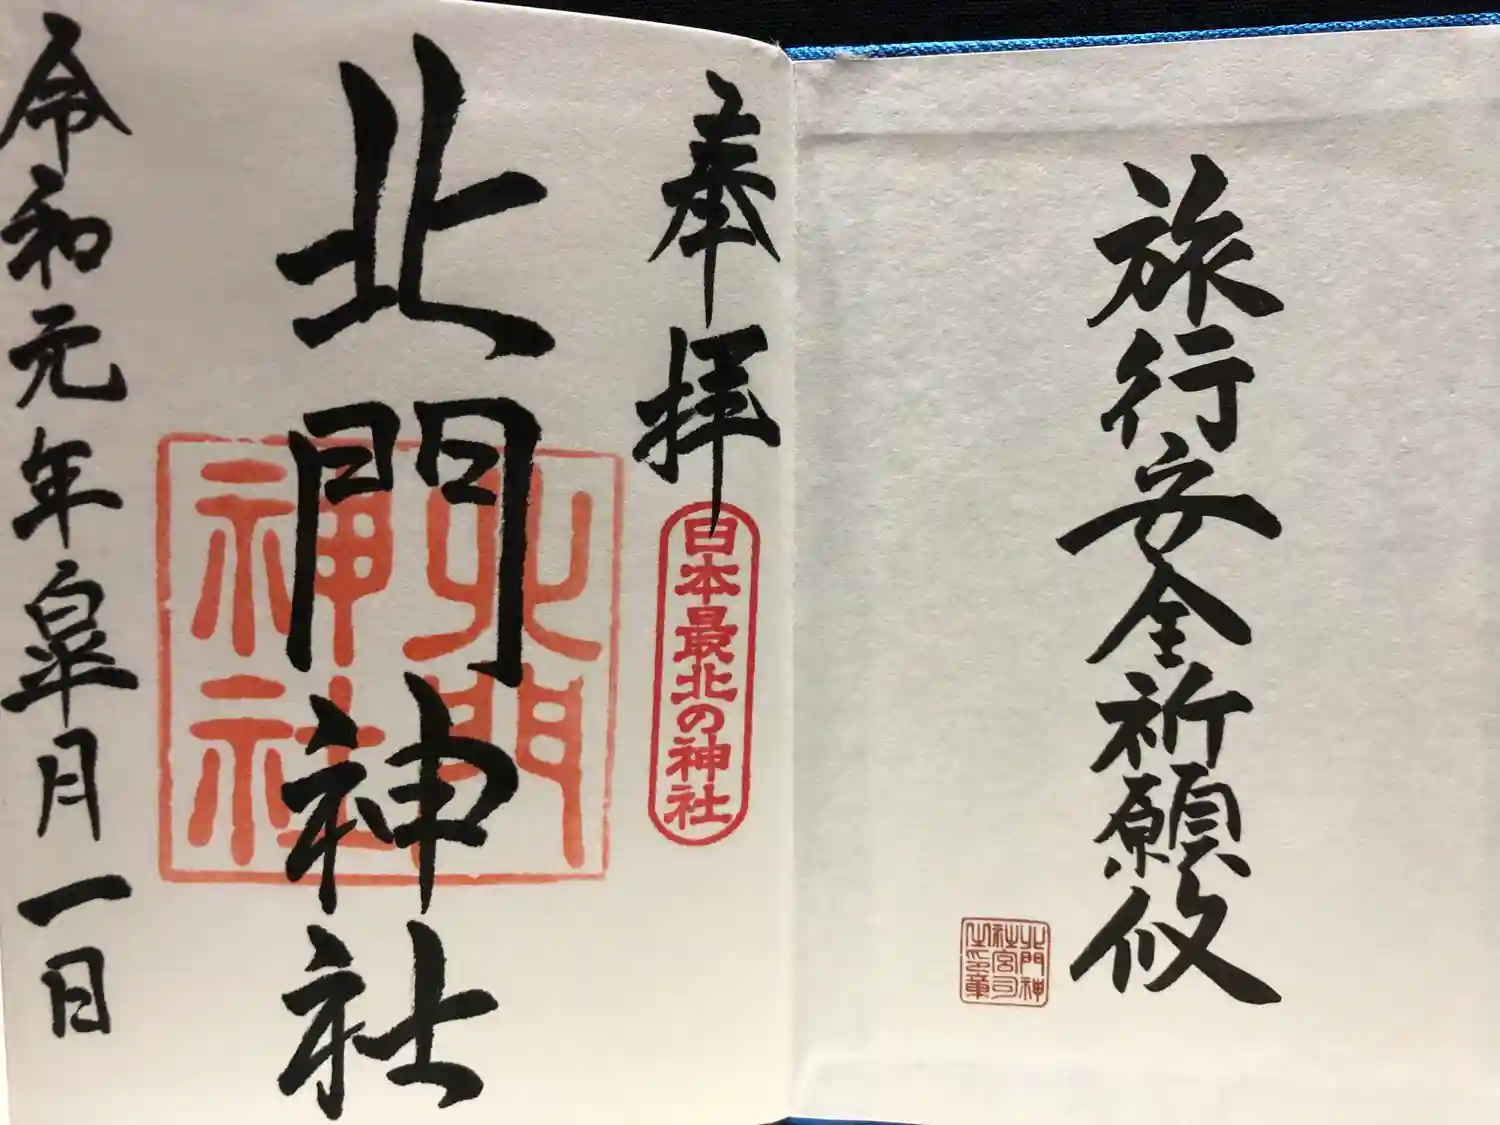 旅行安全祈願攸
北門神
社宮司
之印章
奉拝
日本最北の神社
北門神社
北門
神社
令和元年皐月一日